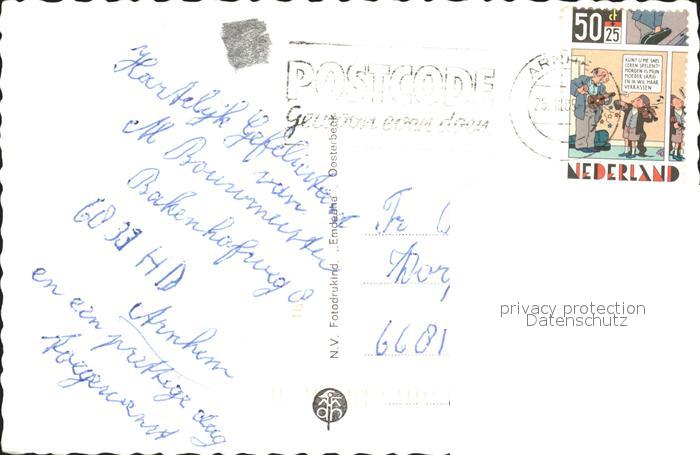 Hartelijk Gefeliciteerd
van
M Bouwmeester
Bakenhofweg 8
6833 HD
Arnhem
en een prettige dag
toegewenst
N.V. Fotodrukind. „Emdeeha” Oosterbeek
POSTCODE
Gewoon even doen
ARNHEM
50 ct
25
KUNT U ME SNEL
LEREN SPELEN?
MORGEN IS MIJN
MOEDER JARIG
EN IK WIL HAAR
VERRASSEN
NEDERLAND
Fr
Dor
6681
privacy protection
Datenschutz